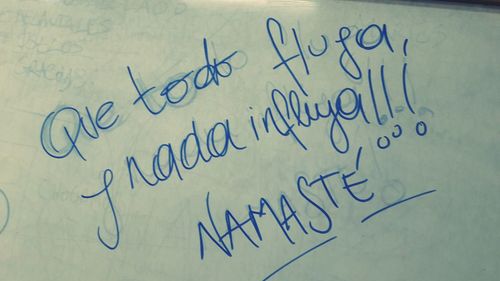 Que todo fluya,
y nada influya!!!
NAMASTÉ